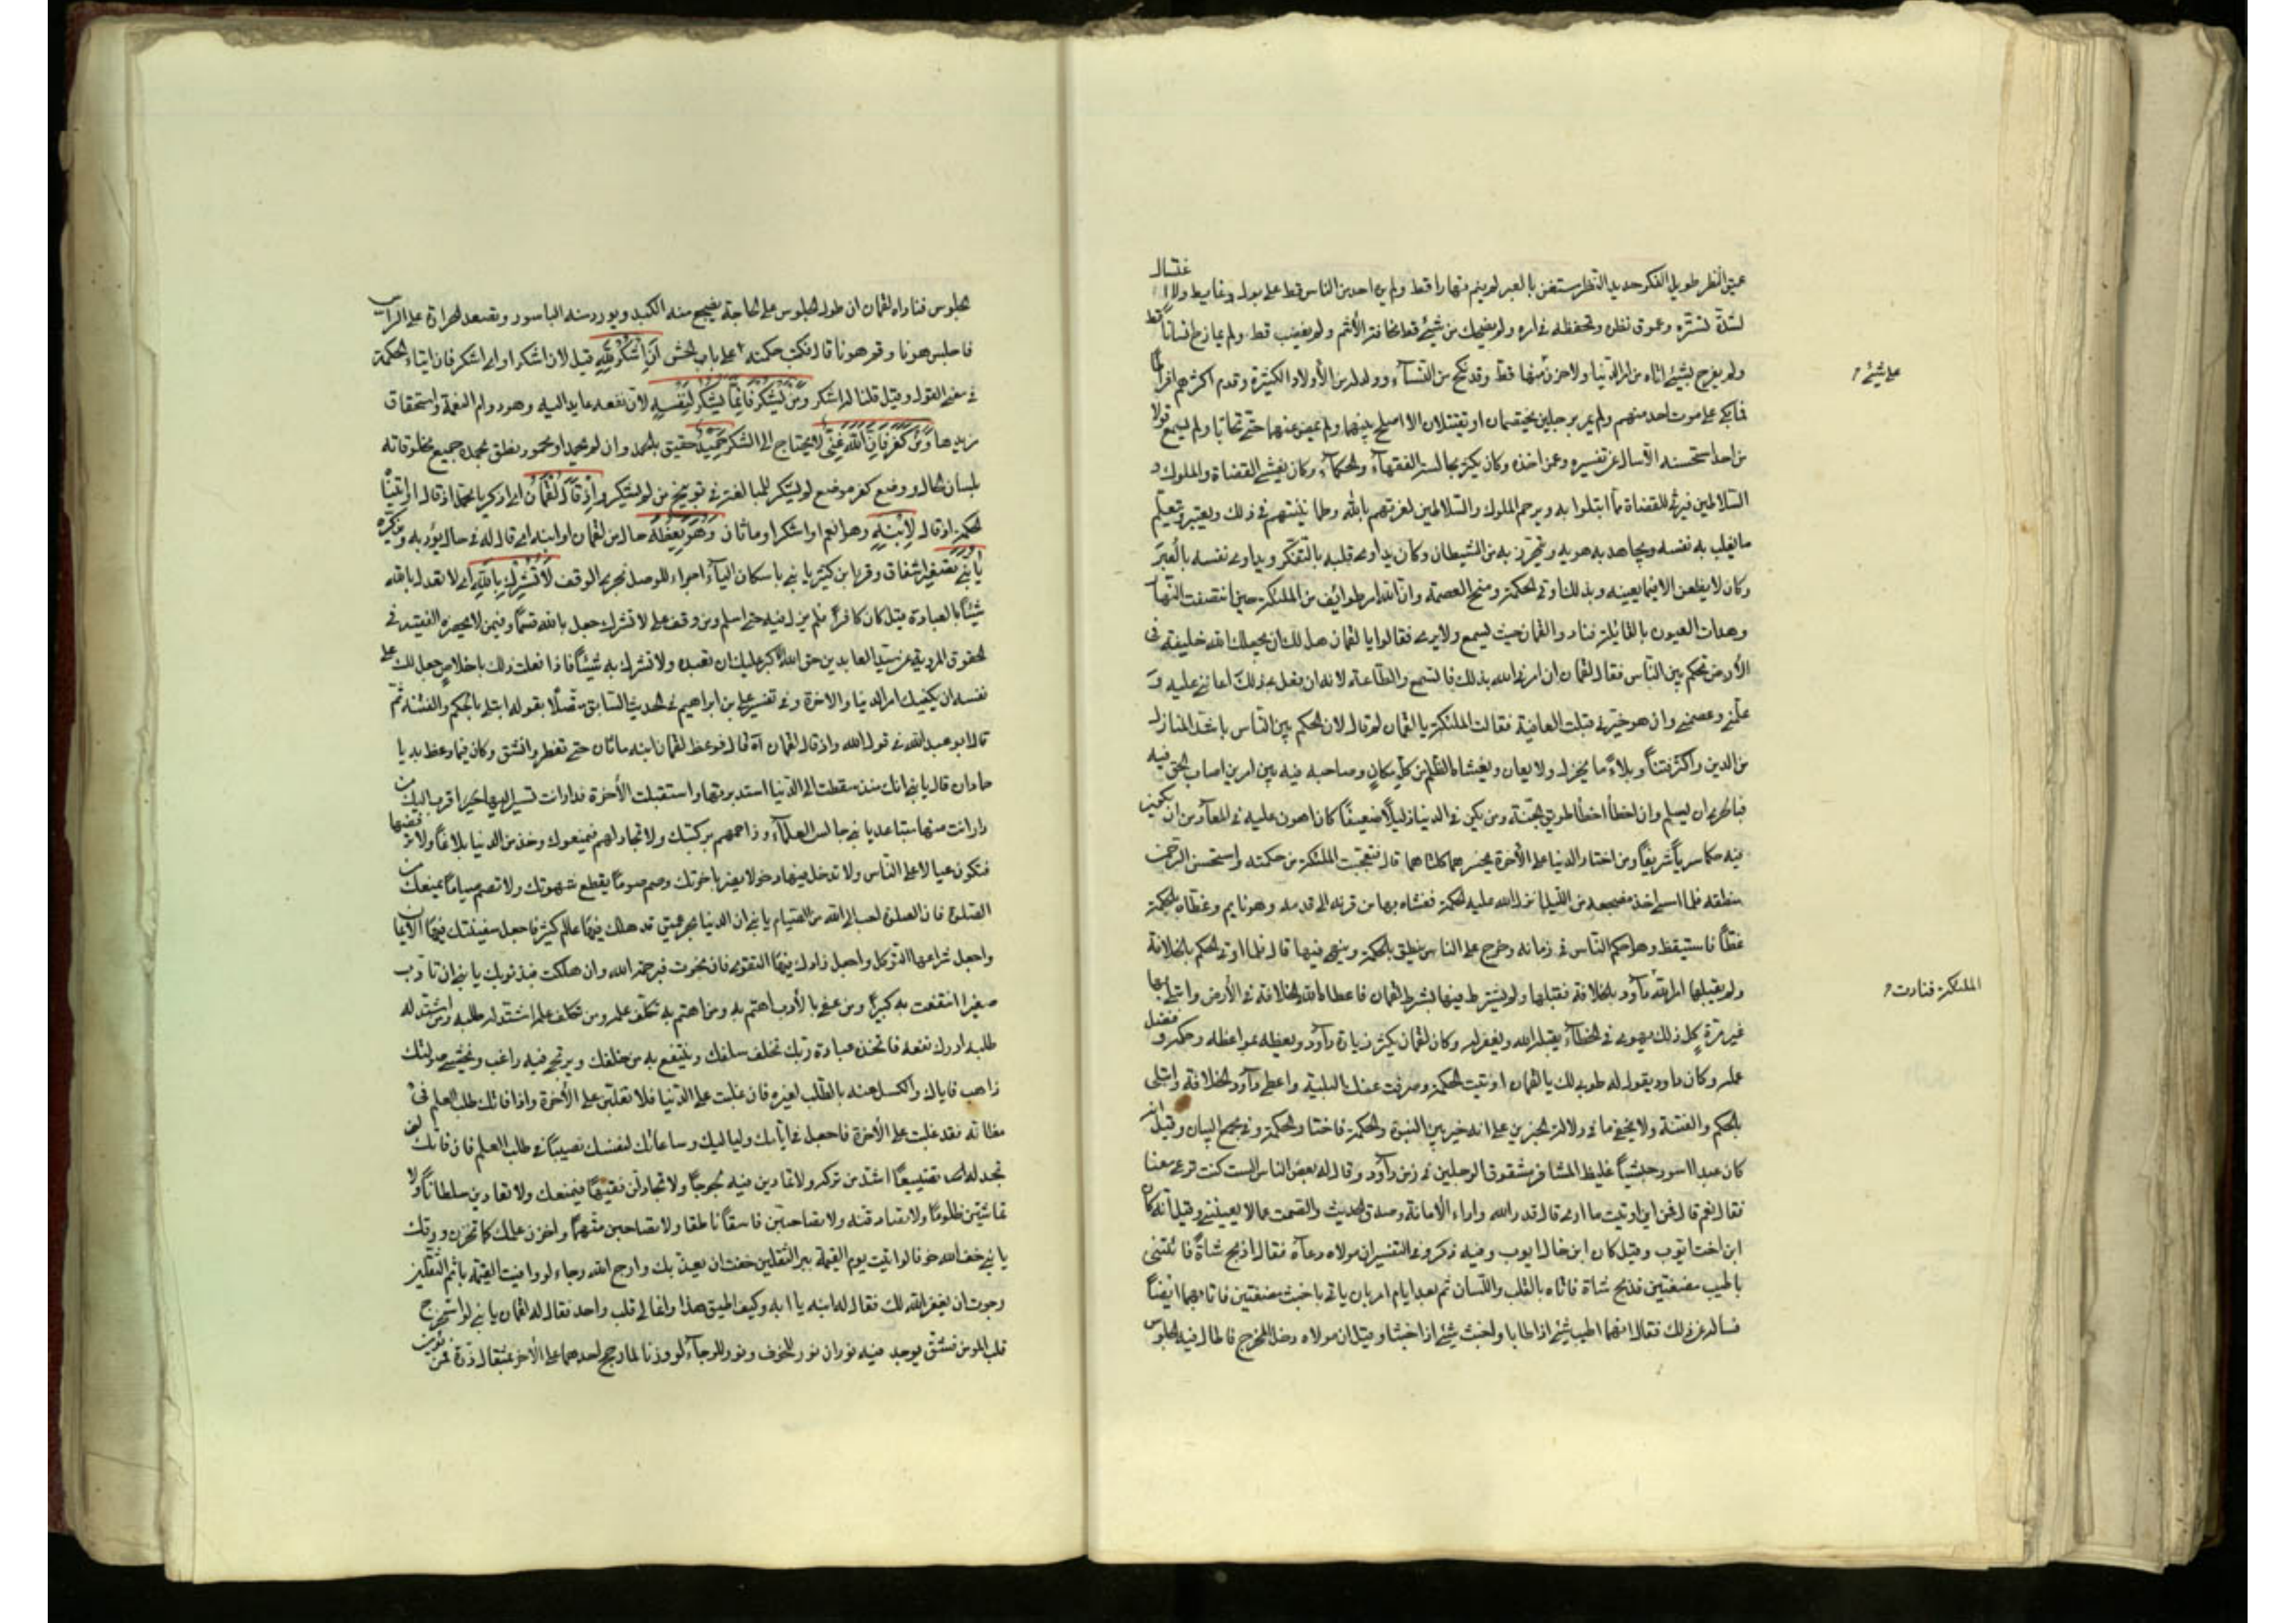 عميق النظر طويل الفكر حديد النظر مستغن بالعبر لم ينم نهارا قط ولم يره احد من الناس قط على بول وغايط ولا اغتسال
لشدة تستره وعموق نظره وتحفظه في امره ولم يضحك من شيئ قط مخافة الأثم ولم يغضب قط ولم يمازح انسانا قط
ولم يفرح بشيئ اتاه من امر الدنيا ولا حزن منها قط وقد نكح من النسآء وولد له من الأولاد الكثيرة وقدم اكثرهم افراطا
على شئ
فما بكى على موت احد منهم ولم يمر برجلين يختصمان او يقتتلان الا اصلح بينهما ولم يمض عنهما حتى تحابا ولم يسمع قولا
من احد استحسنه الا سال عن تفسيره وعمن اخذه وكان يكثر مجالسة الفقهآء والحكمآء وكان يغشى القضاة والملوك و
السلاطين فيرثى للقضاة مما ابتلوا به ويرحم الملوك والسلاطين لعزتهم بالله وطمانينتهم في ذلك ويعتبر ويتعلم
ما يغلب به نفسه ويجاهد به هويه ويتحرز به من الشيطان وكان يداوى قلبه بالتفكر ويداوى نفسه بالعبر
وكان لا يظعن الا فيما يعينه وبذلك اوتى الحكمة ومنح العصمة وان الله امر طوائف من الملئكة حين انتصفت النهار
وهدات العيون بالقائلة فنادوا لقمان حيث يسمع ولا يريهم فقالوا يا لقمان هل لك ان يجعلك الله خليفة في
الأرض تحكم بين الناس فقال لقمان ان امرنى الله بذلك فالسمع والطاعة لانه ان فعل بى ذلك اعاننى عليه و
علمنى وعصمنى وان هو خيرنى قبلت العافية فقالت الملئكة يا لقمان لم قال لان الحكم بين الناس باشد المنازل
من الدين واكثر فتنا وبلاء ما يخذل ولا يعان ويغشاه الظلم من كل مكان وصاحبه فيه بين امرين ان اصاب الحق فيه
فبالحرى ان يسلم وان اخطأ اخطأ طريق الجنة ومن يكن في الدنيا ذليلا ضعيفا كان اهون عليه في المعاد من ان يكون
فيه حكما سريا شريفا ومن اختار الدنيا على الأخرة يخسرهما كلتاهما قال فتعجبت الملئكة من حكمته واستحسن الرحمن
منطقه فلما امسى اخذ مضجعه من الليل انزل الله عليه الحكمة فغشاه بها من قرنه الى قدمه وهو نايم وغطاه بالحكمة
غطأ فاستيقظ وهو احكم الناس في زمانه وخرج على الناس ينطق بالحكمة ويبثها فيها قال فلما اوتى الحكم بالخلافة
ولم يقبلها امر الله دآود بالخلافة فقبلها ولم يشترط فيها بشرط لقمان فاعطاه الله الخلافة في الأرض وابتلى بها
الملئكة فنادت
غير مرة كل ذلك يهوى في الخطآء يقبله الله ويغفر له وكان لقمان يكثر زيارة دآود ويعظه بمواعظه وحكمه وفضل
علمه وكان داود يقول له طوبى لك يا لقمان اوتيت الحكمة وصرفت عنك البلية واعطى دآود الخلافة وابتلى
بالحكم والفتنة ولا يخفى ما في دلالة الخبرين على انه خير بين النبوة والحكمة فاختار الحكمة وفي مجمع البيان وقيل انه
كان عبدا اسود حبشيا غليظ المشافر مشقوق الرجلين في زمن دآود وقال له بعض الناس الست كنت ترعى معنا
فقال نعم قال فمن اين اوتيت ما ارى قال قدر الله واداء الأمانة وصدق الحديث والصمت عما لا يعيننى وقيل انه كان
ابن اخت ايوب وقيل كان ابن خالة ايوب وفيه ذكر وفى التفسير ان مولاه دعآه فقال اذبح شاة فائتنى
باطيب مضغتين فذبح شاة فاتاه بالقلب واللسان ثم بعد ايام امر بان ياتى باخبث مضغتين فاتاه بهما ايضا
فساله عن ذلك فقال انهما اطيب شيئ اذا طابا واخبث شيئ اذا خبثا وقيل ان مولاه دخل المخرج فاطال فيه الجلوس
الجلوس فناداه لقمان ان طول الجلوس على الحاجة يفجع منه الكبد ويورد منه الباسور ويصعد الحرارة على الراس
فاجلس هونا وقم هونا قال فكتب حكمته على باب الحش أن اشكر لله قيل لان اشكر او اى اشكر فان ايتاء الحكمة
في معنى القول وقيل قلنا له اشكر ومن يشكر فانما يشكر لنفسه لان نفعه عايد اليه وهو دوام النعمة واستحقاق
مزيدها ومن كفر فان الله غنى لا يحتاج الى الشكر حميد حقيق بالحمد وان لم يحمد او محمود نطق بحمده جميع مخلوقاته
بلسان الحال ووضع كفر موضع لم يشكر للمبالغة في توبيخ من لم يشكر واذ قال لقمان اى اذكر يا محمد اذ قال او اتينا
الحكمة اذ قال لابنه وهو انعم او اشكر او ماثان وهو يعظه حال من لقمان او ابنه اى قال له في حال يؤدبه ويذكره
يا بنى تصغير اشفاق وقرا ابن كثير يا بنى باسكان اليآء اجراء للوصل مجرى الوقف لا تشرك بالله اى لا تعدل بالله
شيئا بالعبادة قيل كان كافرا فلم يزل فيه حتى اسلم ومن وقف على لا تشرك جعل بالله قسما وفيمن لا يحضره الفقيه في
الحقوق المروية عن سيد العابدين حق الله الأكبر عليك ان تعبده ولا تشرك به شيئا فاذا فعلت ذلك باخلاص جعل لك على
نفسه ان يكفيك امر الدنيا والاخرة وفى تفسير على بن ابراهيم في الحديث السابق متصلا بقوله ابتلى بالحكم والفتنة ثم
قال ابو عبد الله في قول الله واذ قال لقمان آه قال فوعظ لقمان ابنه ماثان حتى تفطر وانشق وكان فيما وعظ به يا
حادان قال يا بنى انك منذ سقطت الى الدنيا استدبرتها واستقبلت الأخرة فدار انت تسير اليها اقرب اليك من
دار انت منها متباعد يا بنى جالس العلمآء وزاحمهم بركبتك ولا تجادلهم فيمنعوك وخذ من الدنيا بلاغا ولا ترفضها
فتكون عيالا على الناس ولا تدخل فيها دخولا يضر باخرتك وصم صوما يقطع شهوتك ولا تصم صياما يمنعك من
الصلوة فان الصلوة احب الى الله من الصيام يا بنى ان الدنيا بحر عميق قد هلك فيها عالم كثير فاجعل سفينتك فيها الأيمان
واجعل شراعها التوكل واجعل زادك فيها التقوى فان نجوت فبرحمة الله وان هلكت فبذنوبك يا بنى ان تادب
صغيرا انتفعت به كبيرا ومن عنى بالأدب اهتم به ومن اهتم به تكلف علمه ومن تكلف علمه اشتد له طلبه ومن اشتد له
طلبه ادرك نفعه فاتخذه عبادة ربك تخلف سلفك وينتفع به من خلفك ويرتجى فيه راغب ويخشى صولتك
راهب فاياك والكسل عنه بالطلب لغيره فان غلبت على الدنيا فلا تغلبن على الأخرة واذا فاتك طلب العلم في
مظانه فقد غلبت على الأخرة فاجعل في ايامك ولياليك وساعاتك لنفسك نصيبا في طلب العلم فان فاتك لن
تجد له تضييعا اشد من تركه ولا تمارين فيه لجوجا ولا تجادلن فقيها فيمنعك ولا تعادين سلطانا ولا
تماشين ظلوما ولا تصادقنه ولا تصاحبن فاسقا ناطقا ولا تصاحبن متهما واخزن علمك كما تخزن ورقك
يا بنى خف الله خوفا لو اتيت يوم القيمة ببر الثقلين خفت ان يعذبك وارج الله رجاء لو وافيت القيمة باثم الثقلين
رجوت ان يغفر الله لك فقال له ابنه يا ابه وكيف اطيق هذا وانما لى قلب واحد فقال له لقمان يا بنى لو استخرج
قلب المؤمن فشق يوجد فيه نوران نور للخوف ونور للرجآء لو وزنا لما رجح احدهما على الأخر بمثقال ذرة فمن يؤمن